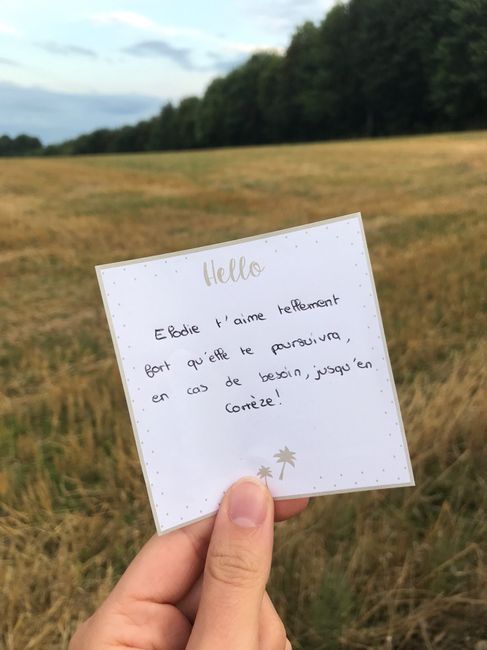 Hello
Elodie t'aime tellement
fort qu'elle te poursuivra,
en cas de besoin, jusqu'en
Corrèze!